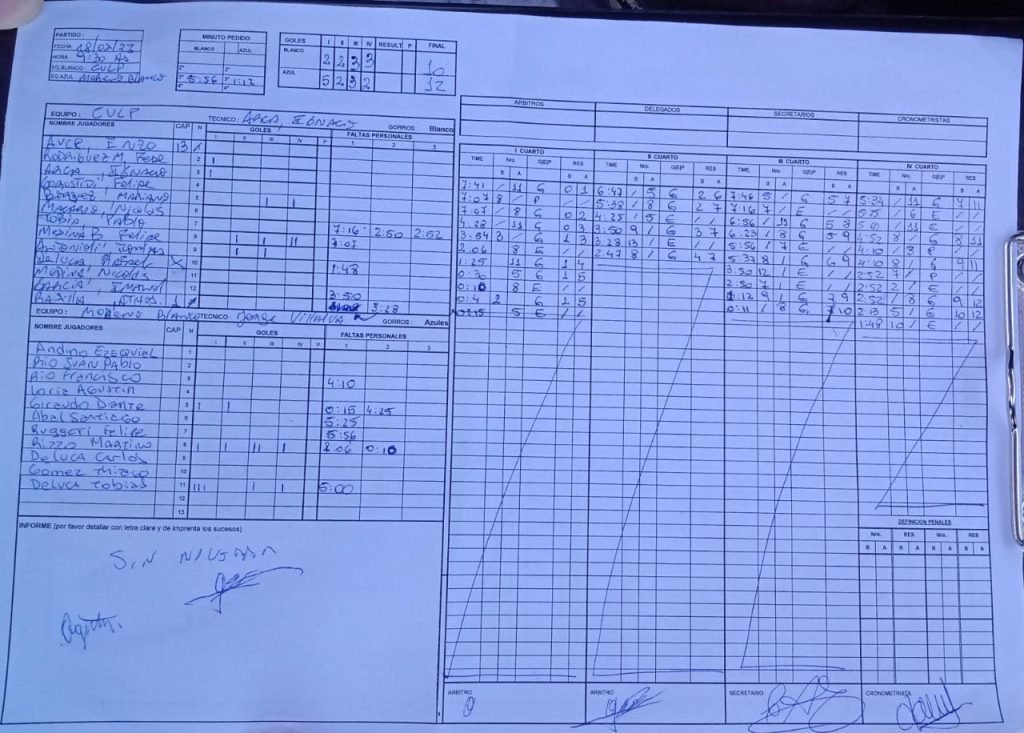 PARTIDO :
FECHA 18/02/23
HORA. 9:30 Hs
EQ.BLANCO: CULP
EQ.AZUL MORENO BLANCO
MINUTO PEDIDO
BLANCO AZUL
1° 1°
2° 2°
3° 5:56 3° 1:12
4° 4°
GOLES I II III IV RESULT P FINAL
BLANCO 2 2 3 3 10
AZUL 5 2 3 2 12
EQUIPO : CULP TÉCNICO: ARCA, IGNACIO GORROS Blanco
NOMBRE JUGADORES CAP N GOLES FALTAS PERSONALES
I II III IV P 1 2 3
ENZO 13
RODRIGUEZ M, Pepe 2
ARCA, IGNACIO 3
Felipe 4
MARIANO 5
NICOLAS 6
TOBIO PABLO 7 7:16 2:50 2:52
MEDINA B Felipe 8 7:07
9
DeLUCA RAFAEL 10 1:48
MEDINA NICOLAS 11
GARCIA, 12 3:50
BASILLA, ATHOS. 1 3:28
EQUIPO : MORENO BLANCO TÉCNICO: Jorge VILLALVA GORROS : Azules
NOMBRE JUGADORES CAP N GOLES FALTAS PERSONALES
I II III IV P 1 2 3
Andino EZEQUIEL 1
Rio JUAN PABLO 2
Rio Francisco 3 4:10
Loriz AGUSTIN 4
Giraudo Dante 5 0:15 4:25
Abal SANTIAGO 6 5:25
Ruggeri Felipe 7 5:56
Rizzo MARTINO 8 2:06 0:10
DeLUCA CARLOS 9
Gomez THIAGO 10
DeLUCA TOBIAS 11 5:00
12
13
INFORME (por favor detallar con letra clara y de imprenta los sucesos)
SIN NOVEDAD
ARBITROS DELEGADOS SECRETARIOS CRONOMETRISTAS
I CUARTO II CUARTO III CUARTO IV CUARTO
TIME Nro. G/E/P RES TIME Nro. G/E/P RES TIME Nro. G/E/P RES TIME Nro. G/E/P RES
B A B A B A B A B A B A B A B A
7:41 / 11 G 0 1 6:47 / 5 G 2 6 7:46 5 / G 5 7 5:34 / 11 G 9 11
7:07 8 / P / / 5:38 / 8 G 2 7 7:16 7 / E / / 5:25 / 6 E / /
7:07 / 8 G 0 2 4:25 / 5 E / / 6:56 / 11 G 5 8 5:00 / 11 E / /
4:28 / 11 G 0 3 3:50 9 / G 3 7 6:23 / 8 G 5 9 4:52 8 / G 8 11
3:34 3 / G 1 3 3:28 13 / E / / 5:56 / 7 E / / 4:10 / 3 P / /
2:06 / 8 E / / 2:47 8 / G 4 7 5:37 8 / G 6 9 4:10 8 / G 9 11
1:25 / 11 G 1 4 3:50 12 / E / / 2:52 7 / P / /
0:30 / 5 G 1 5 2:50 7 / E / / 2:52 2 / E / /
0:10 / 8 E / / 1:12 9 / G 7 9 2:52 / 8 G 9 12
0:4 2 / G 2 5 0:11 / 8 G 7 10 2:13 5 / G 10 12
0:15 / 5 E / / 1:48 10 / E / /
DEFINICION PENALES
Nro. RES Nro. RES
B A B A B A B A
ARBITRO ARBITRO SECRETARIO CRONOMETRISTA